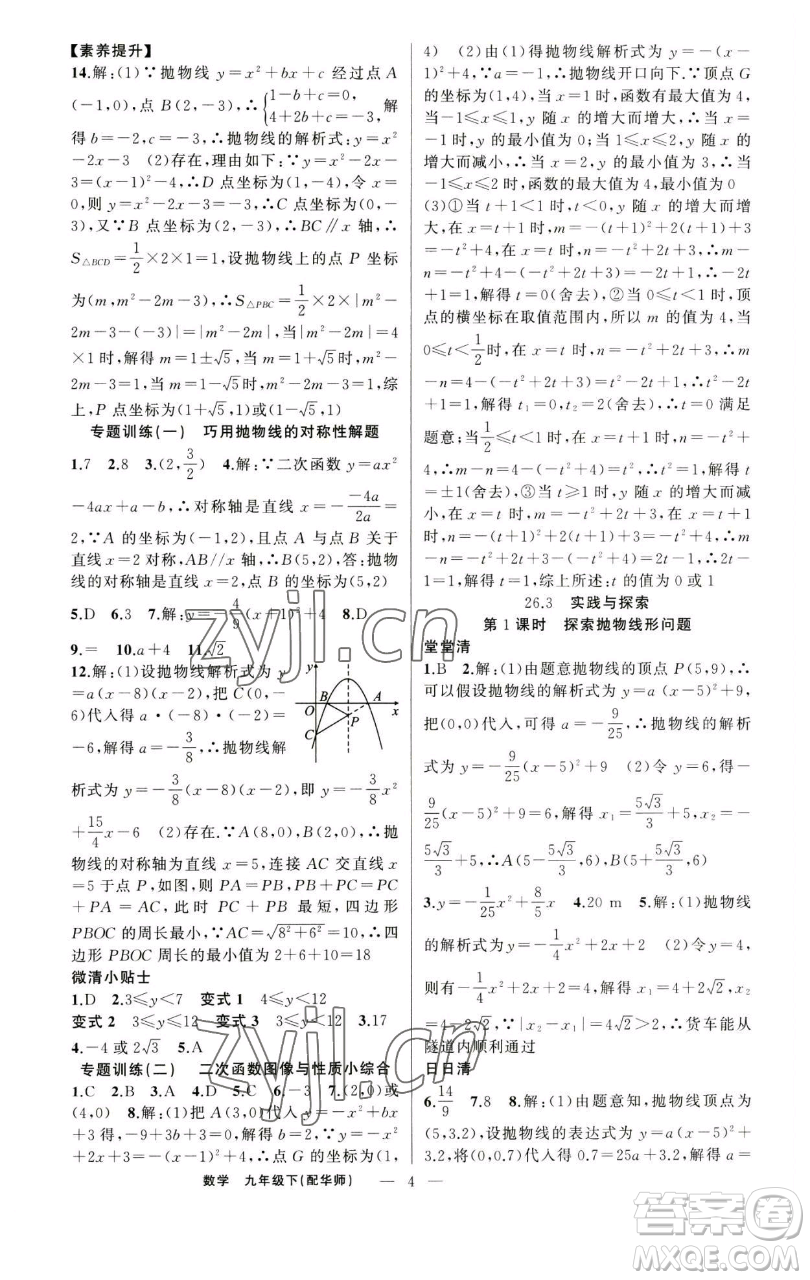 【素养提升】
14.解:(1)∵抛物线 y=x²+bx+c 经过点 A
(-1,0),点 B(2,-3),∴{1-b+c=0, 4+2b+c=-3, 解
得 b=-2,c=-3,∴抛物线的解析式:y=x²
-2x-3 (2)存在,理由如下:∵y=x²-2x-
3=(x-1)²-4,∴D 点坐标为(1,-4),令 x=
0,则 y=x²-2x-3=-3,∴C 点坐标为(0,-
3),又∵B 点坐标为(2,-3),∴BC∥x 轴,∴
S△BCD=1/2×2×1=1,设抛物线上的点 P 坐标
为(m,m²-2m-3),∴S△PBC=1/2×2×|m²-
2m-3-(-3)|=|m²-2m|,当|m²-2m|=4
×1时,解得 m=1±√5,当 m=1±√5时,m²-
2m-3=1,当 m=1-√5时,m²-2m-3=1,综
上,P 点坐标为(1+√5,1)或(1-√5,1)
专题训练(一) 巧用抛物线的对称性解题
1.7 2.8 3.(2,3/2) 4.解:∵二次函数 y=ax²
-4ax+a-b,∴对称轴是直线 x=-(-4a)/2a=
2,∵A 的坐标为(-1,2),且点 A 与点 B 关于
直线 x=2 对称,AB//x 轴,∴B(5,2),答:抛物
线的对称轴是直线 x=2,点 B 的坐标为(5,2)
5.D 6.3 7.解:y=-4/9(x+1)²+4 8.D
9.= 10.a+4 11.√2
12.解:(1)设抛物线解析式为 y
=a(x-8)(x-2),把 C(0,-
6)代入得 a·(-8)·(-2)=
-6,解得 a=-3/8,∴抛物线解
析式为 y=-3/8(x-8)(x-2),即 y=-3/8x²
+15/4x-6 (2)存在.∵A(8,0),B(2,0),∴抛
物线的对称轴为直线 x=5,连接 AC 交直线 x
=5 于点 P,如图,则 PA=PB,∴PB+PC=PC
+PA=AC,此时 PB+PC 最短,四边形
PBOC 的周长最小,∵AC=√8²+6²=10,∴四
边形 PBOC 周长的最小值为 2+6+10=18
y
O
B
A
x
P
C
微清小贴士
1.D 2.3≤y<7 变式 1 4≤y<12
变式 2 3≤y≤12 变式 3 3≤y<12 3.17
4.-4或 2√3 5.A
专题训练(二) 二次函数图像与性质小综合
1.C 2.B 3.A 4.D 5.C 6.-3 7.(2,0)或
(4,0) 8.解:(1)把 A(3,0)代入 y=-x²+bx
+3得,-9+3b+3=0,解得 b=2,∴y=-x²+
2x+3=-(x-1)²+4,∴点 G 的坐标为(1,
4) (2)由(1)得抛物线解析式为 y=-(x-
1)²+4,∵a=-1,∴抛物线开口向下.∵顶点 G
的坐标为(1,4),当 x=1 时,函数有最大值为 4,
当-1≤x≤1时,y 随 x 的增大而增大,当 x=
-1 时,y 的最小值为 0;当 1≤x≤2,y 随 x 的
增大而减小,当 x=2 时,y 的最小值为 3,∴当
-1≤x≤2时,函数的最大值为 4,最小值为 0
(3)①当 t+1<1 时,t<0,y 随 x 的增大而增
大,在 x=t+1 时,m=-(t+1)²+2(t+1)+3
=-t²+4,在 x=t 时,n=-t²+2t+3,∴m-
n=-t²+4-(-t²+2t+3)=-2t+1,又∵m-
n=1,解得 t=0(舍去),②当 t<1≤t+1时,顶
点的横坐标在取值范围内,所以 m 的值为 4,当
0≤t<1/2时,在 x=t 时,n=-t²+2t+3,∴m
-n=4-(-t²+2t+3)=t²-2t+1,又∵m-n
=1,解得 t₁=0,t₂=2(舍去),∴t=0 时,满足
题意;当1/2≤t≤1时,在 x=t+1时,n=-t²+
4,∴m-n=4-(-t²+4)=t²,又∵m-n=1,解
得 t=±1,③当 t≥1时,y 随 x 的增大而减
小,在 x=t 时,m=-t²+2t+3,在 x=t+1
时,n=-(t+1)²+2(t+1)+3=-t²+4,∴m
-n=-t²+2t+3-(-t²+4)=2t-1,又∵m-n
=1,解得 t=1(舍去).综上所述:t 的值为 0 或 1
26.3 实践与探索
第 1 课时 探索抛物线形问题
堂堂清
1.B 2.解:(1)由题意抛物线的顶点 P(5,9),∴
可以假设抛物线的解析式为 y=a(x-5)²+9,
把(0,0)代入,可得 a=-9/25,∴抛物线的解析
式为 y=-9/25(x-5)²+9 (2)令 y=6,得-
9/25(x-5)²+9=6,解得 x₁=5√3/3+5,x₂=-
5√3/3+5,∴A(5-5√3/3,6),B(5+5√3/3,6)
3.y=-1/25x²+8/5x 4.20 m 5.解:(1)抛物线
的解析式为 y=-1/4x²+2x+2 (2)令 y=4,
则有-1/4x²+2x+2=4,解得 x₁=4+2√2,x₂
=4-2√2,∵|x₂-x₁|=4√2>4,∴货车能从
隧道内顺利通过
日日清
6.14/9 7.8 8.解:(1)由题意知,抛物线顶点为
(5,3.2),设抛物线的表达式为 y=a(x-5)²+
3.2,将(0,0.7)代入得 0.7=25a+3.2,解得 a=
数学 九年级下(配华师) — 4 —
zyjl.cn
zyjl.cn
答案圈
MXQE.COM